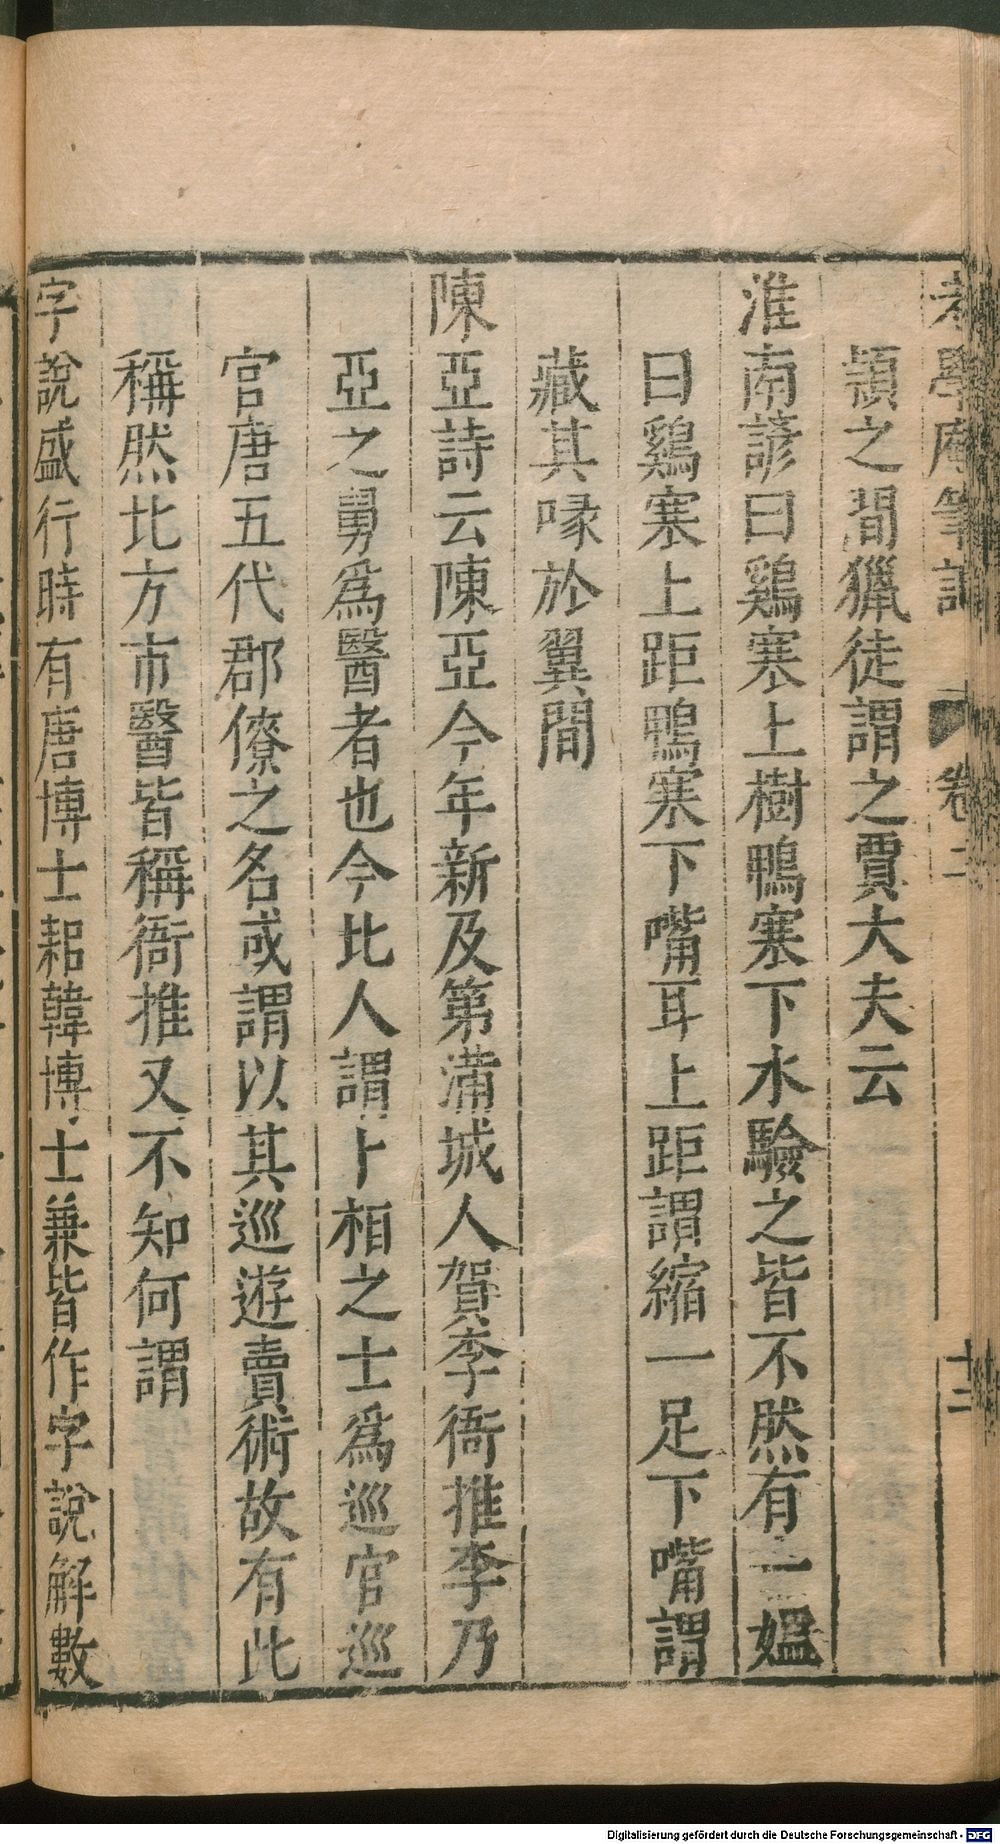 老學庵筆記 卷二 十二
潁之間獵徒謂之賈大夫云
淮南諺曰鷄寒上樹鴨寒下水驗之皆不然有一媼
曰鷄寒上距鴨寒下嘴耳上距謂縮一足下嘴謂
藏其喙於翼間
陳亞詩云陳亞今年新及第滿城人賀李衙推李乃
亞之舅爲醫者也今北人謂卜相之士爲巡官巡
官唐五代郡僚之名或謂以其巡遊賣術故有此
稱然北方市醫皆稱衙推又不知何謂
字說盛行時有唐博士耜韓博士兼皆作字說解數
Digitalisierung gefördert durch die Deutsche Forschungsgemeinschaft - DFG